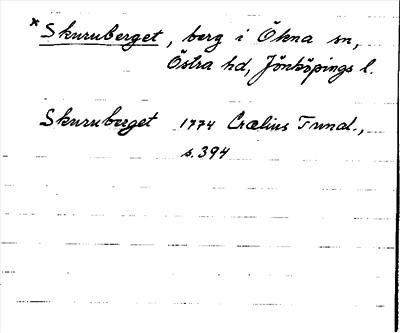 *Skuruberget, berg i Ökna sn,
Östra hd, Jönköpings l.
Skuruberget 1774 Crælius Tund.,
s. 394